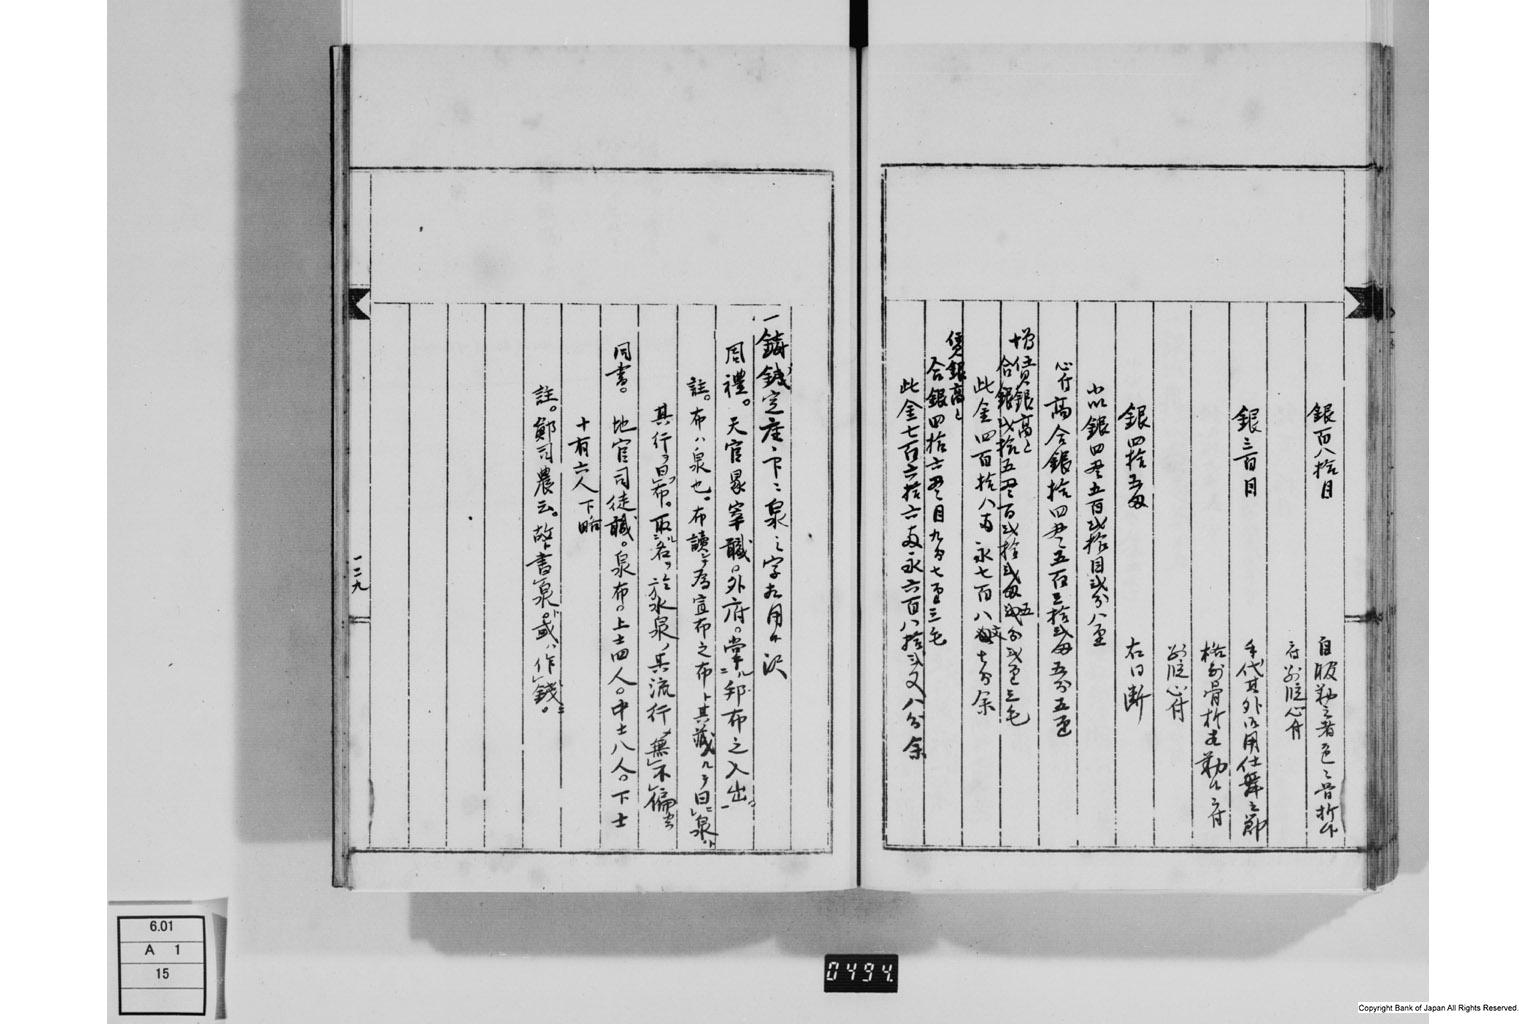 銀百八拾目
自服勤之者色々骨折
付別段心付
銀三百目
手代其外御用仕舞之節
格別骨折相勤候ニ付
別段心付
銀四拾五匁
右同断
小以銀四貫五百弐拾目弐分八厘
心付高合銀拾四貫五百三拾弐匁五分五厘
増賃銀高〆
合銀弐拾五貫百弐拾弐匁五分弐厘三毛
此金四百拾八両永七百八文七分余
賃銀高〆
合銀四拾六貫目九分七厘三毛
此金七百六拾六両永六百八拾弐文八分余
一鋳銭定座下ニ泉之字相用候訳
周禮。天官冢宰職。外府。掌邦布之入出。
註。布ハ泉也。布讀為宣布之布ト其藏ルヲ曰泉ト
其行ヲ曰布。取名ヲ於水泉ノ其流行無不徧
同書。地官司徒職。泉布。上士四人。中士八人。下士
十有六人下略
註。鄭司農云。故ト書泉。或ハ作錢。
一二九
6.01
A 1
15
0494.
Copyright Bank of Japan All Rights Reserved.